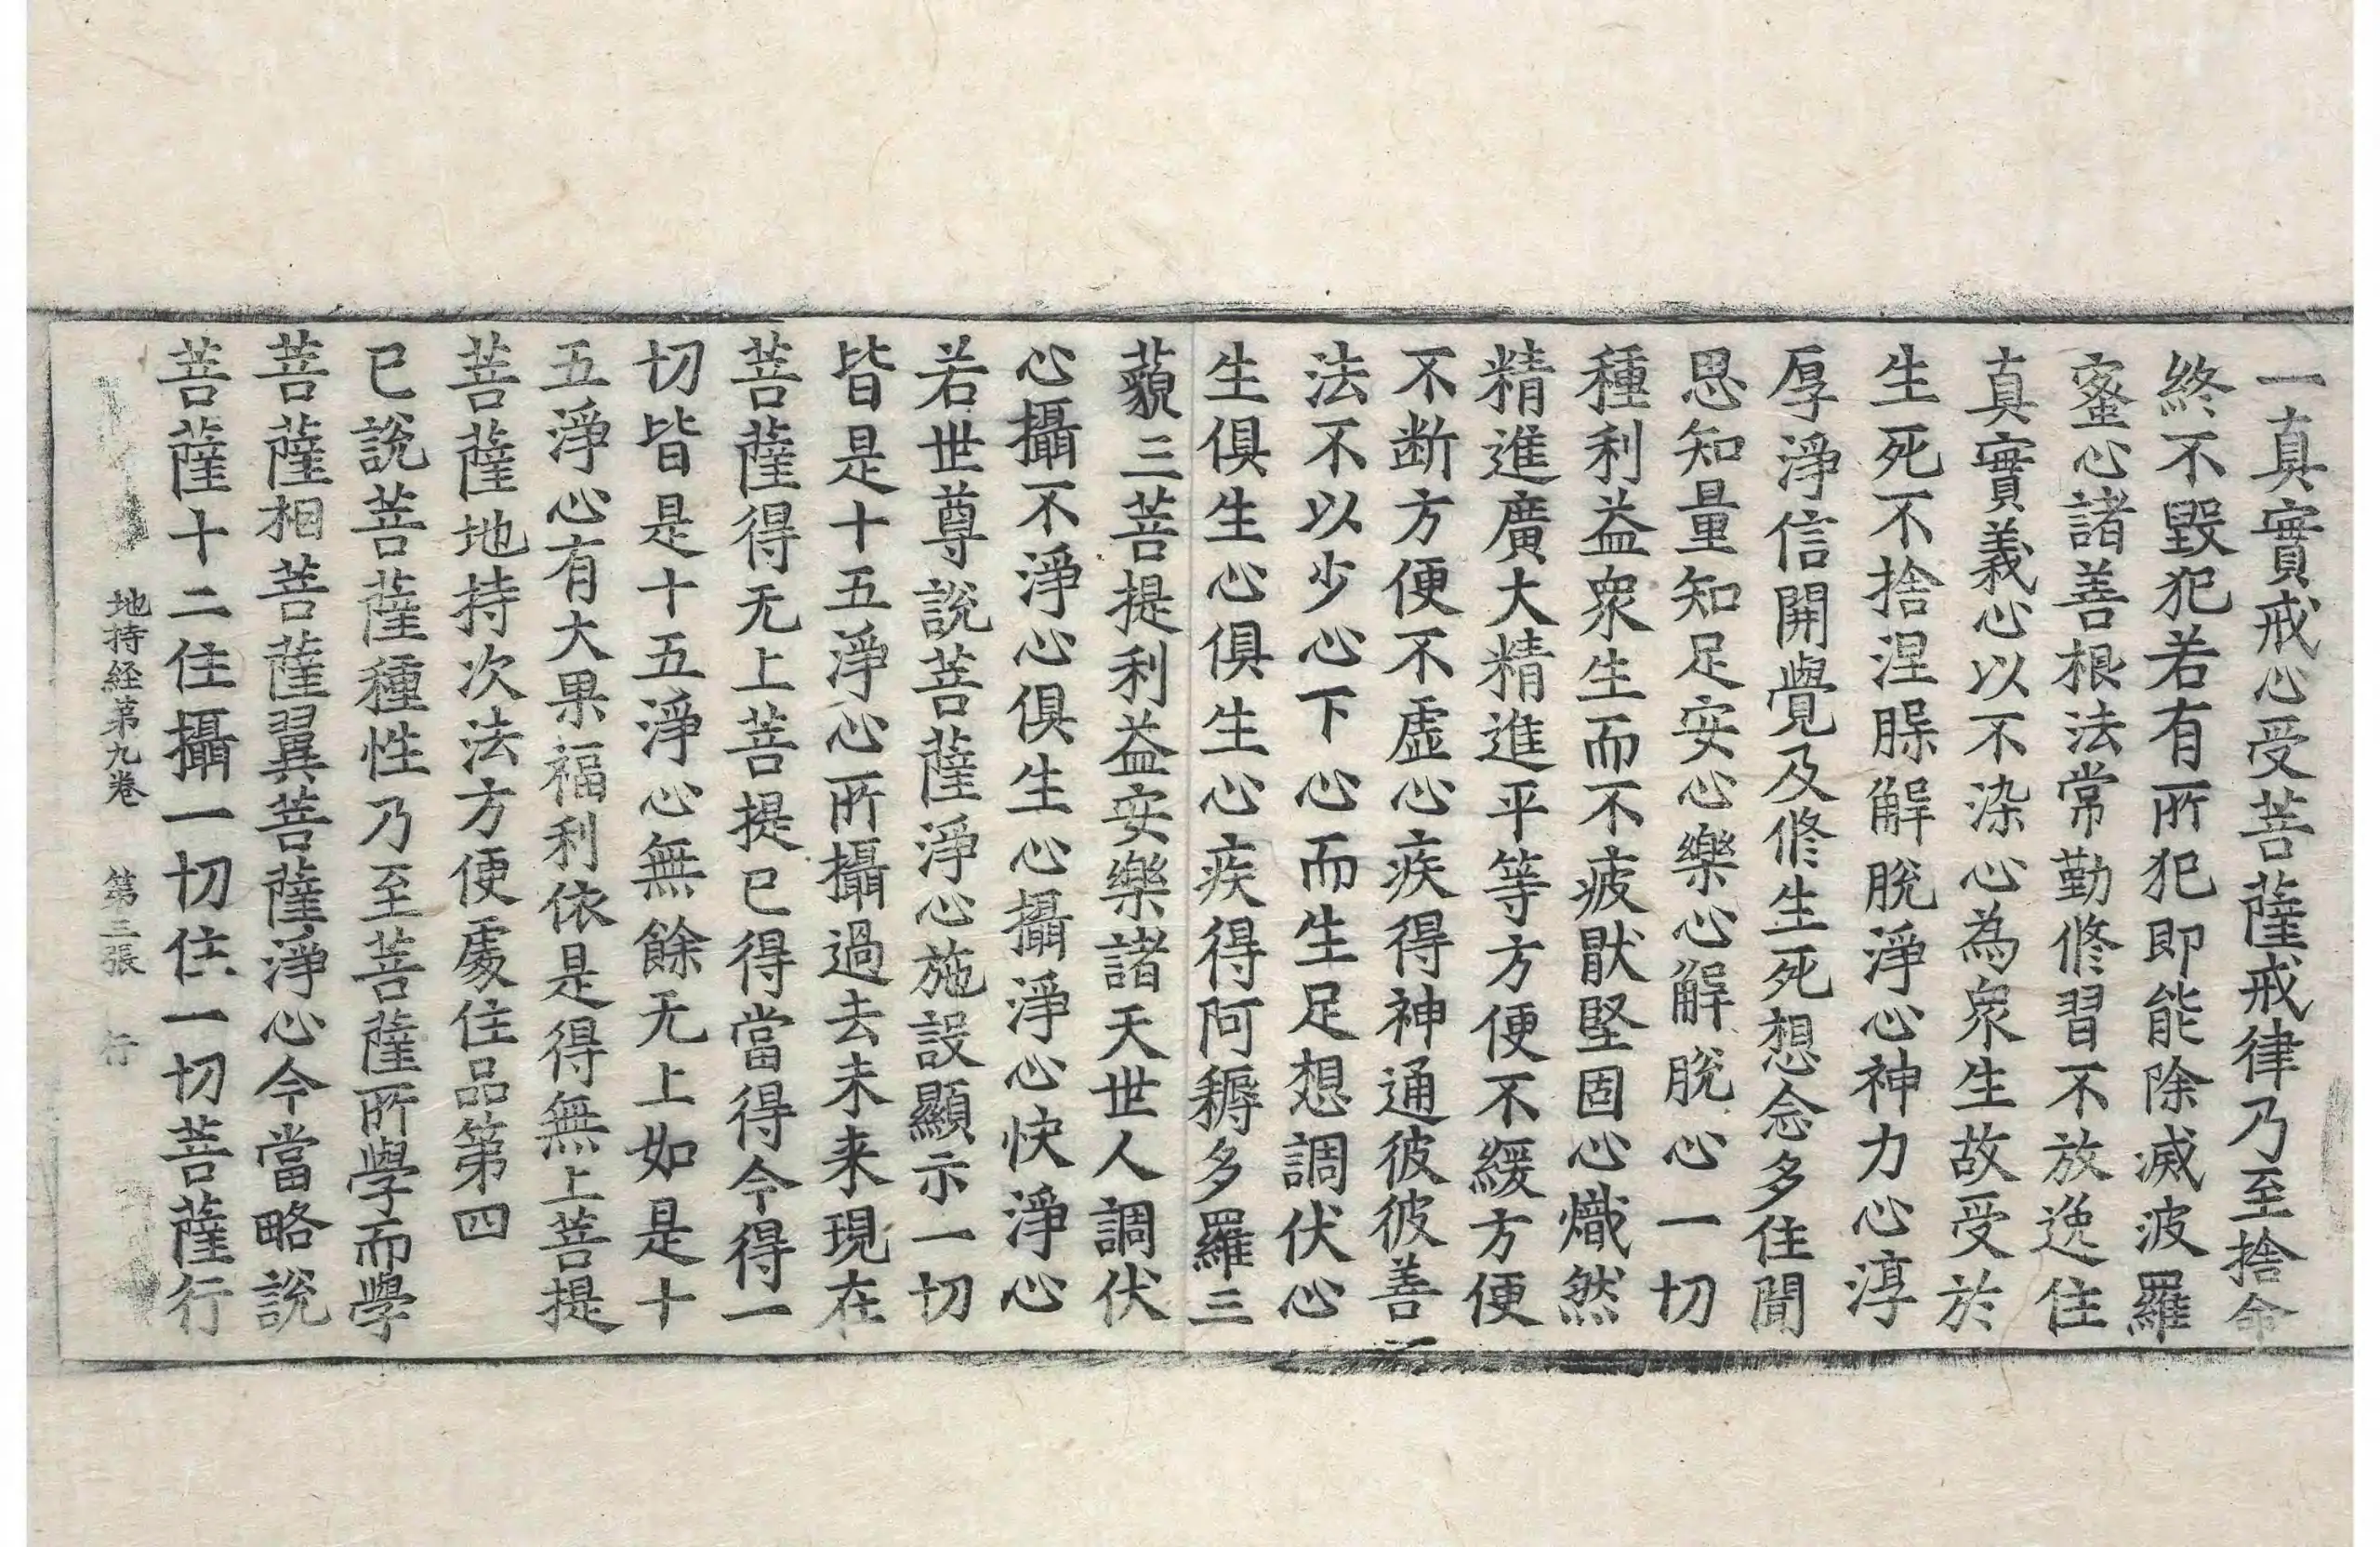 一真實戒心受菩薩戒律乃至捨命
終不毀犯若有所犯即能除滅波羅
蜜心諸善根法常勤修習不放逸住
真實義心以不染心為衆生故受於
生死不捨涅脲解脫淨心神力心淳
厚淨信開覺及修生死想念多住聞
思知量知足安心樂心解脫心一切
種利益衆生而不疲厭堅固心熾然
精進廣大精進平等方便不緩方便
不断方便不虛心疾得神通彼彼善
法不以少心下心而生足想調伏心
生俱生心俱生心疾得阿耨多羅三
藐三菩提利益安樂諸天世人調伏
心攝不淨心俱生心攝淨心快淨心
若世尊說菩薩淨心施設顯示一切
皆是十五淨心所攝過去未来現在
菩薩得无上菩提已得當得今得一
切皆是十五淨心無餘无上如是十
五淨心有大果福利依是得無上菩提
菩薩地持次法方便處住品第四
已說菩薩種性乃至菩薩所學而學
菩薩相菩薩翼菩薩淨心今當略說
菩薩十二住攝一切住一切菩薩行
地持経第九卷 第三張 行